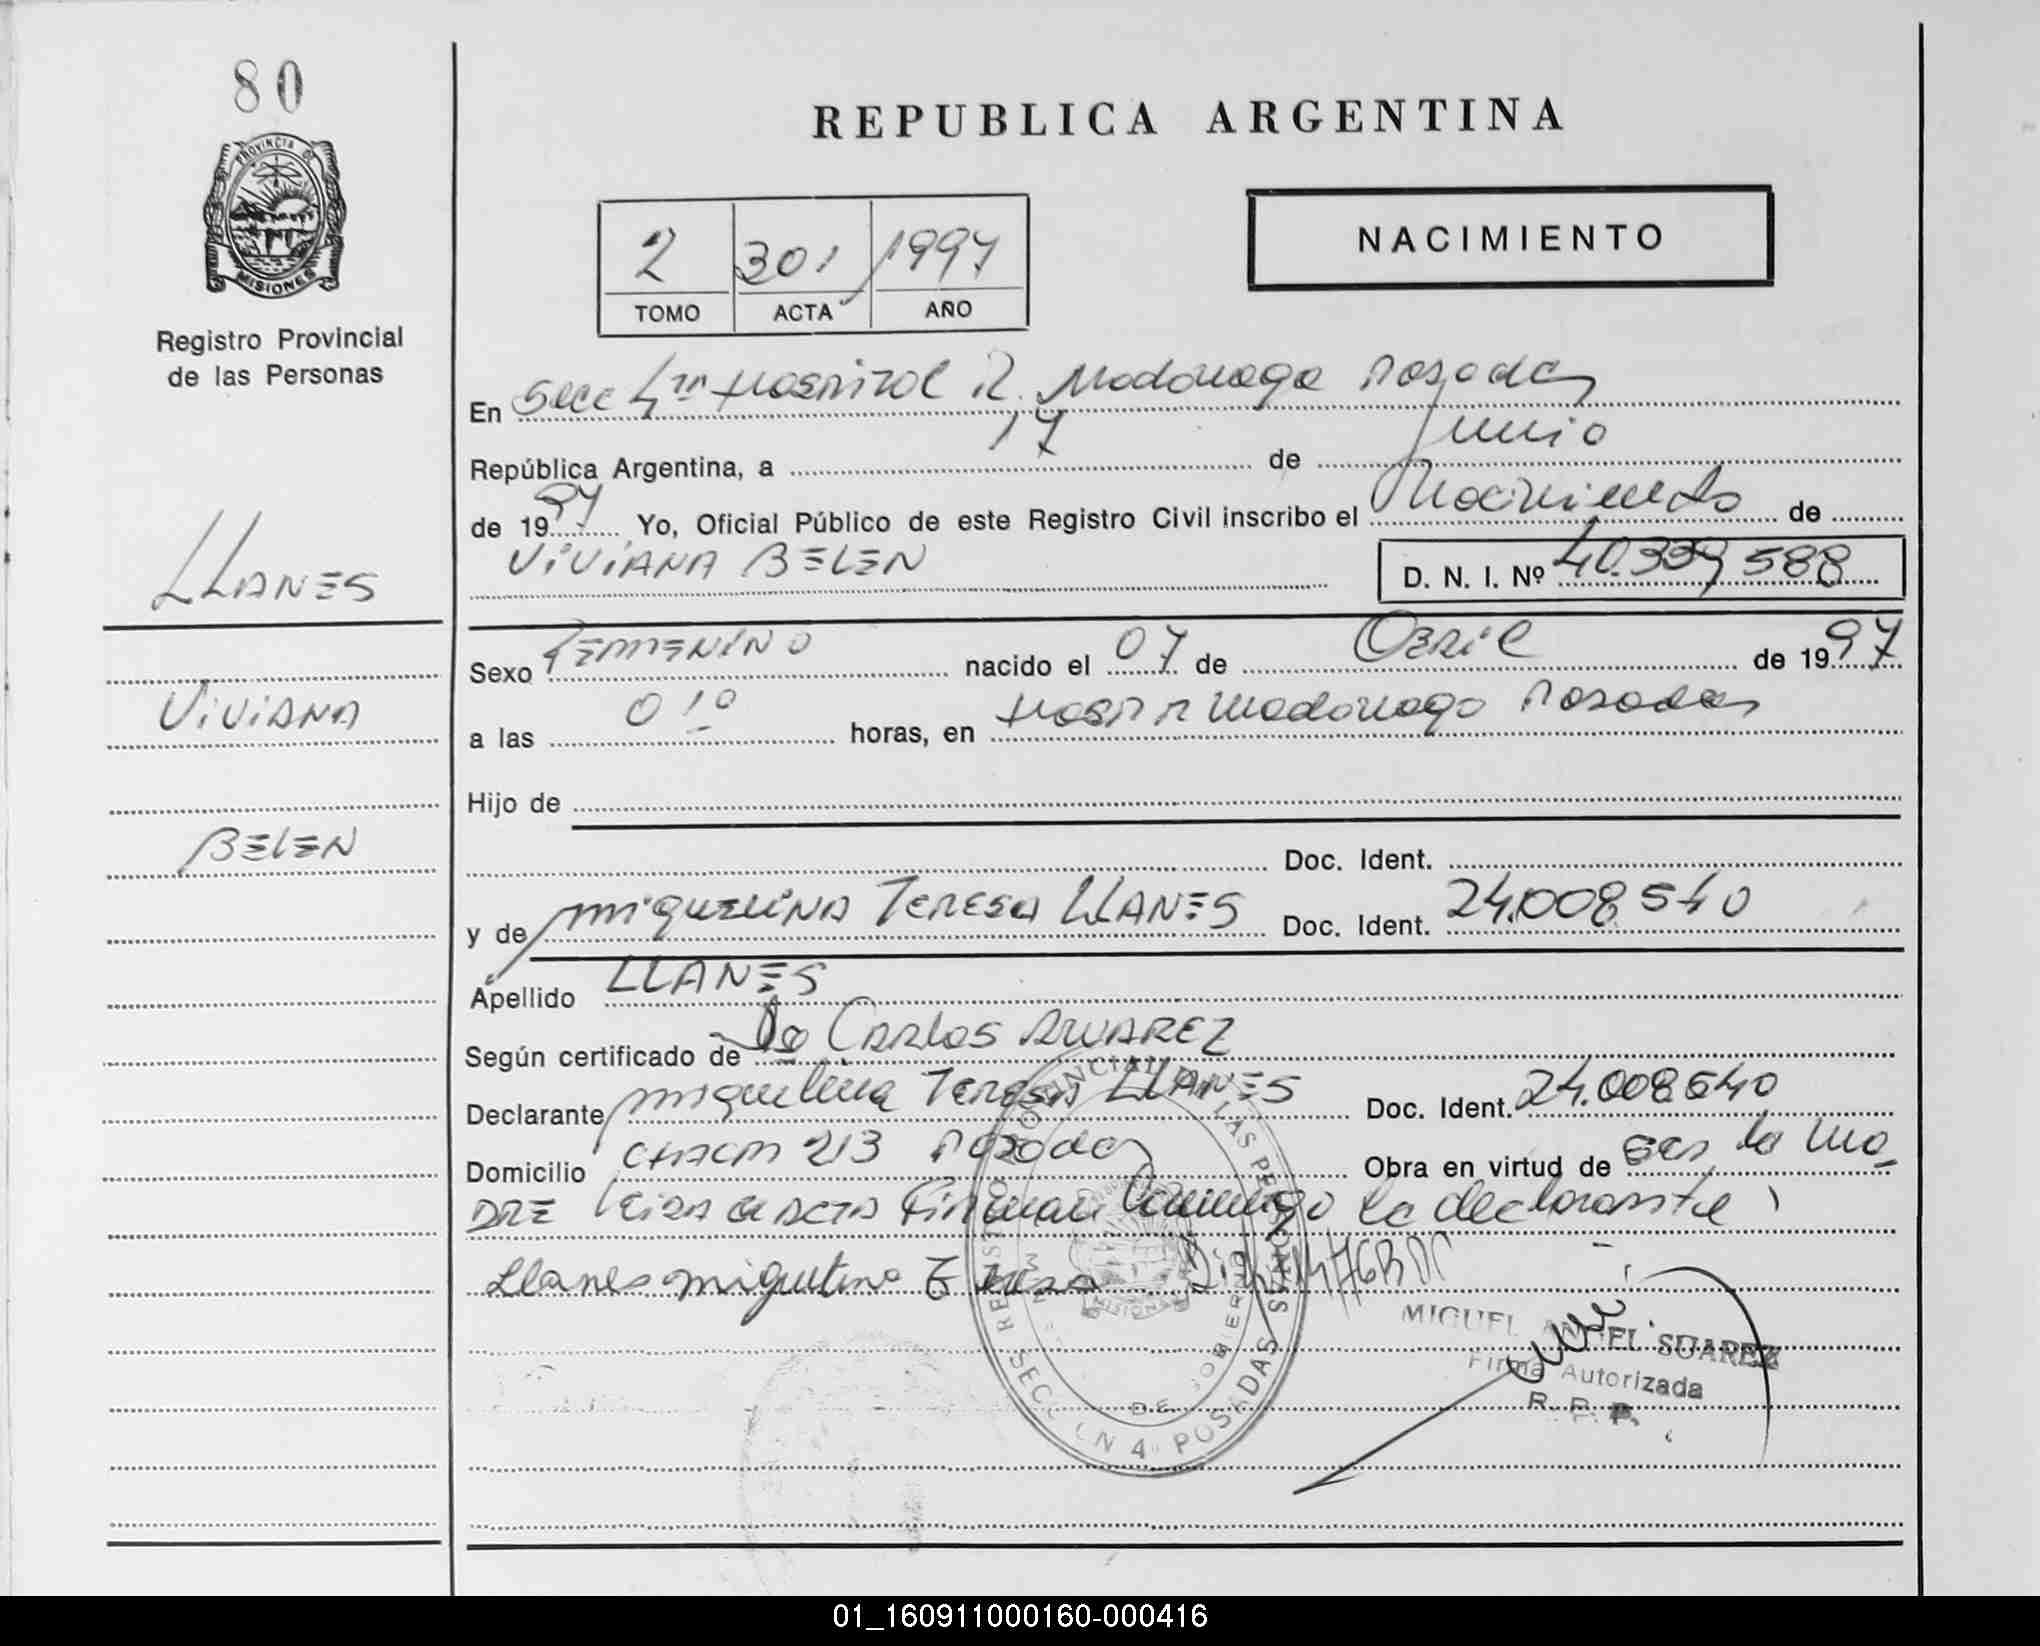 80
PROVINCIA DE
MISIONES
Registro Provincial
de las Personas
LLANES
VIVIANA
BELEN
REPUBLICA ARGENTINA
2 301 1997
TOMO ACTA AÑO
NACIMIENTO
En Secc 4ta Hospital R. Madariaga Posadas
República Argentina, a 17 de Junio
de 1997 Yo, Oficial Público de este Registro Civil inscribo el Nacimiento de
VIVIANA BELEN D. N. I. Nº 40.339588
Sexo FEMENINO nacido el 07 de ABRIL de 1997
a las 01º horas, en Hosp R Madariaga Posadas
Hijo de
Doc. Ident.
y de MIQUELINA TERESA LLANES Doc. Ident. 24.008.540
Apellido LLANES
Según certificado de Carlos ALVAREZ
Declarante Miquelina Teresa LLANES Doc. Ident. 24.008540
Domicilio CHACRA 213 Posadas Obra en virtud de ser la MA
DRE Leida el ACTA Firman conmigo la declarante
Llanes miquelina Teresa
MIGUEL ANGEL SUAREZ
Firma Autorizada
R. P. P.
SECCION 4ª POSADAS
MISIONES
01_160911000160-000416